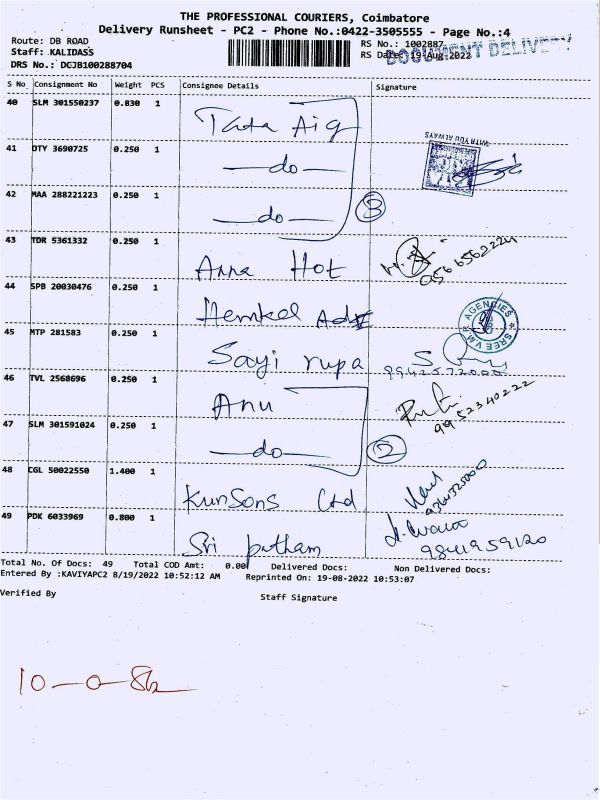 THE PROFESSIONAL COURIERS, Coimbatore
Delivery Runsheet - PC2 - Phone No.:0422-3505555 - Page No.:4
Route: DB ROAD
Staff: KALIDASS
DRS No.: DCJB100288704
RS No.: 1002887
RS Date: 19-Aug-2022
DOCUMENT DELIVERY
S No Consignment No Weight PCS Consignee Details Signature
40 SLM 301550237 0.830 1 Tata Aig
WITH YOU ALWAYS
41 DTY 3690725 0.250 1 —do—
42 MAA 288221223 0.250 1 —do— 3
43 TDR 5361332 0.250 1 Anna Hot
44 SPB 20030476 0.250 1 Hemkel
SREE V.M.R AGENCIES
45 MTP 281583 0.250 1 Sayi rupa
46 TVL 2568696 0.250 1 Anu 9952340222
47 SLM 301591024 0.250 1 —do— 2
48 CGL 50022550 1.400 1 KunSons Ltd
49 PDK 6033969 0.800 1 Sri patham 9841959120
Total No. Of Docs: 49 Total COD Amt: 0.00 Delivered Docs: Non Delivered Docs:
Entered By :KAVIYAPC2 8/19/2022 10:52:12 AM Reprinted On: 19-08-2022 10:53:07
Verified By Staff Signature